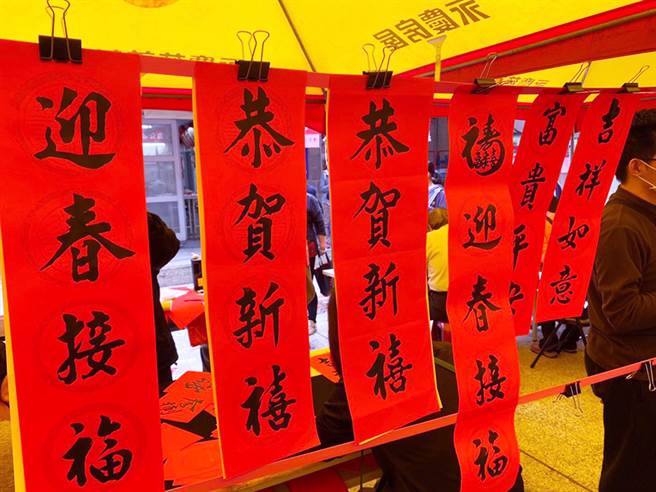 迎春接福
恭賀新禧
恭賀新禧
迎春接福
富貴平安
吉祥如意